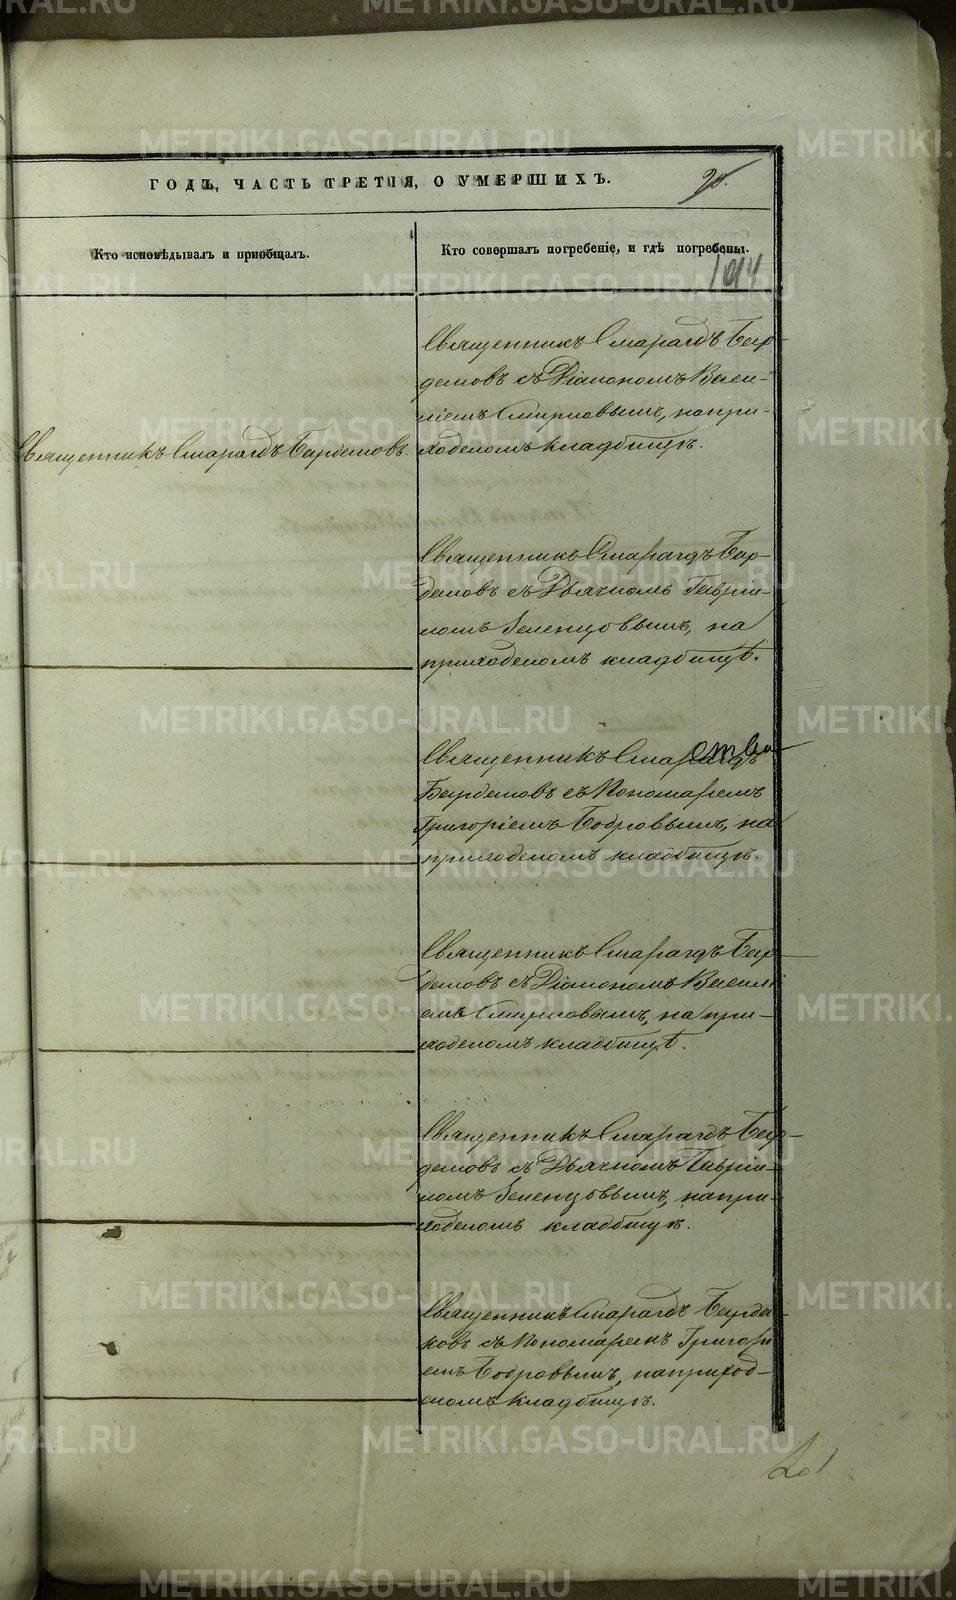 ГОДЪ, ЧАСТЬ ТРЕТІЯ, О УМЕРШИХЪ.
Кто исповѣдывалъ и пріобщалъ.
Кто совершалъ погребеніе, и гдѣ погребены.
1014
Священникъ Смарагдъ
Священникъ Смарагдъ
съ Діакономъ Васи-
ліемъ Смирновымъ, на при-
ходскомъ кладбищѣ.
Священникъ Смарагдъ
съ Дьячкомъ Гаврiи-
ломъ Зеленцовымъ, на
приходскомъ кладбищѣ.
Священникъ Смарагдъ
съ Пономаремъ
Григоріемъ Бобровымъ, на
приходскомъ кладбищѣ.
Священникъ Смарагдъ
съ Діакономъ Василі
емъ Смирновымъ, на при-
ходскомъ кладбищѣ.
Священникъ Смарагдъ
съ Дьячкомъ Гаврiи-
ломъ Зеленцовымъ, на при-
ходскомъ кладбищѣ.
Священникъ Смарагдъ
съ Пономаремъ Григорі
емъ Бобровымъ, на приход-
скомъ кладбищѣ.
METRIKI.GASO-URAL.RU